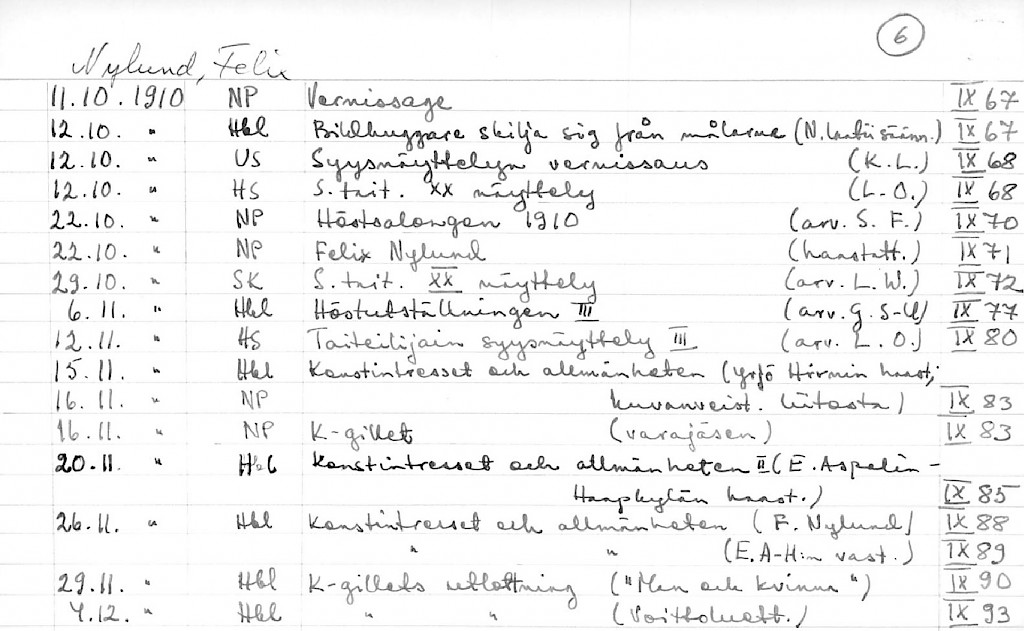 6
Nylund, Felix
11.10.1910 NP Vernissage IX 67
12.10. " Hbl Bildhuggare skilja sig från målarne (N. säänn.) IX 67
12.10. " US Syysnäyttelyn vernissaus (K.L.) IX 68
12.10. " HS S.tait. XX näyttely (L-O.) IX 68
22.10. " NP Höstsalongen 1910 (arv. S. F.) IX 70
22.10. " NP Felix Nylund (haastatt.) IX 71
29.10. " SK S.tait. XX näyttely (arv. L.W.) IX 72
6.11. " Hbl Höstutställningen III (arv. G. S-ll) IX 77
12.11. " HS Taiteilijain syysnäyttely III (arv. L.O.) IX 80
15.11. " Hbl Konstintresset och allmänheten (Yrjö Hirnin haast;
16.11. " NP kuvanveist. liitosta) IX 83
16.11. " NP K-gillet (varajäsen) IX 83
20.11. " Hbl Konstintresset och allmänheten II (E. Aspelin-
Haapkylän haast.) IX 85
26.11. " Hbl Konstintresset och allmänheten (F. Nylund) IX 88
" " (E.A-H:n vast.) IX 89
29.11. " Hbl K-gillets utlottning ("Man och kvinna") IX 90
4.12. " Hbl " " (Voittoluett.) IX 93